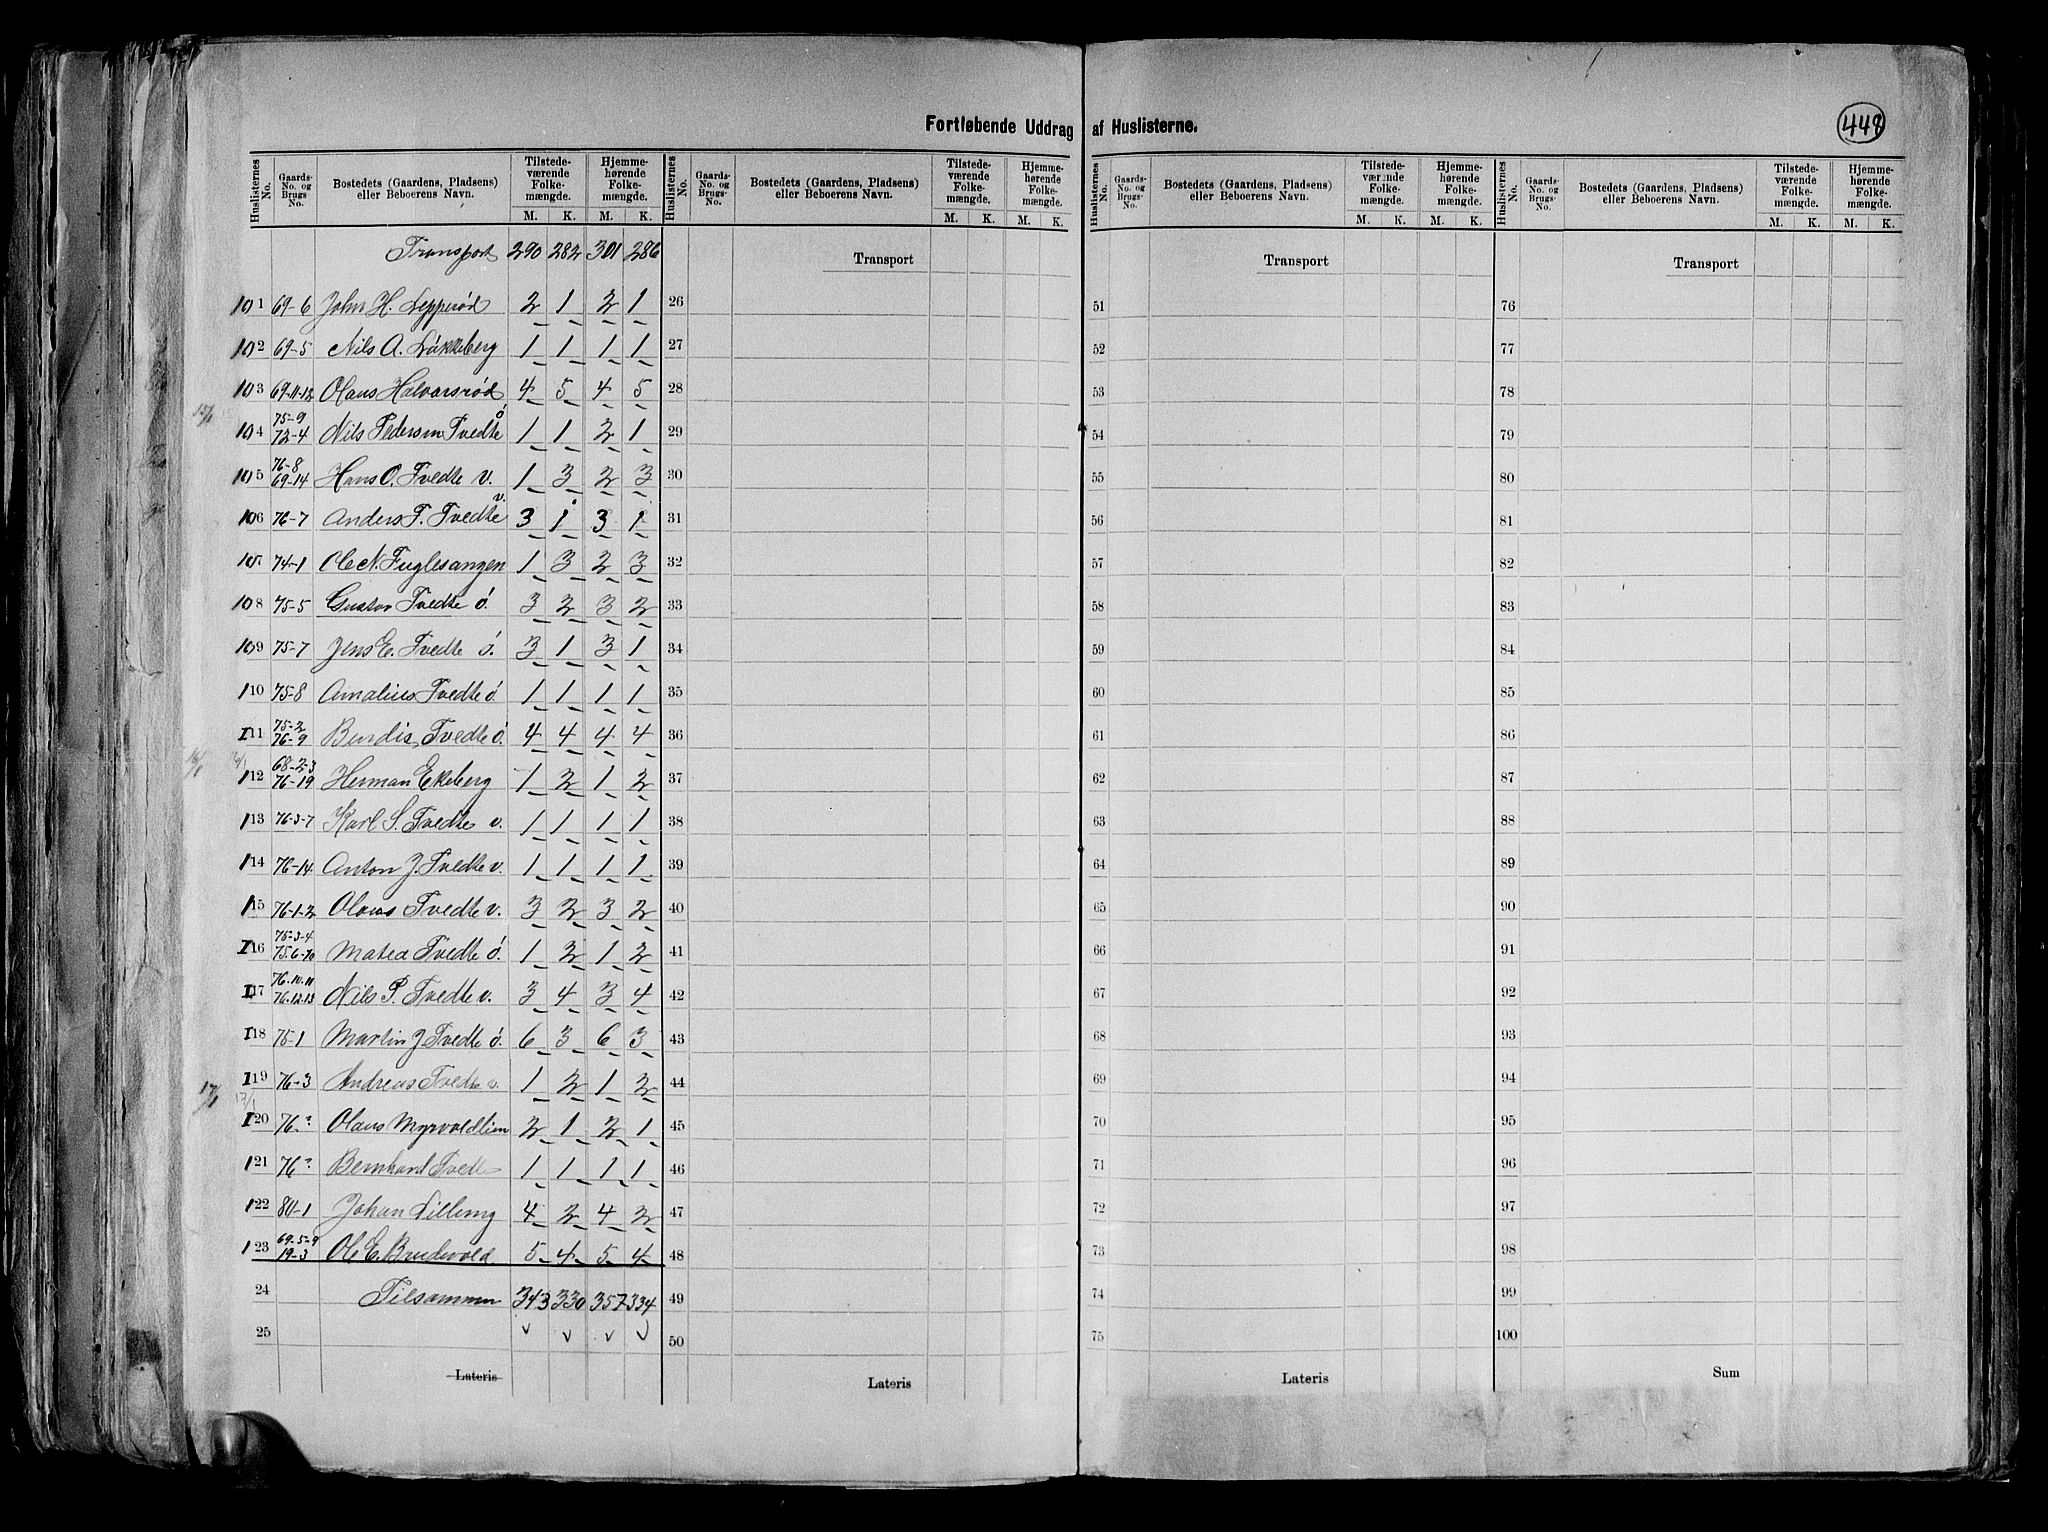 Fortløbende Uddrag af Huslisterne.
448
Huslisternes No. Gaards-No. og Brugs-No. Bostedets (Gaardens, Pladsens) eller Beboerens Navn. Tilstedeværende Folkemængde. M. K. Hjemmehørende Folkemængde. M. K.
Transport 290 282 301 286
101 69-6 John H. Lepperød 2 1 2 1
102 69-5 Nils A. Løkkeberg 1 1 1 1
103 69-11-12 Olaus Halvorsrød 4 5 4 5
15/1
104 75-9 72-4 Nils Pedersen Tvedte ó 1 1 2 1
105 76-8 69-14 Hans O. Tvedte v. 1 3 2 3
106 76-7 Anders T. Tvedte v. 3 1 3 1
107 74-1 Ole N. Fuglesangen 1 3 2 3
108 75-5 Gustav Tvedte ó. 3 2 3 2
109 75-7 Jens E. Tvedte ó. 3 1 3 1
110 75-8 Amalius Tvedte ó. 1 1 1 1
111 75-2 76-9 Bendis Tvedte ó. 4 4 4 4
16/1
112 68-2-3 76-19 Herman Ekeberg 1 2 1 2
113 76-3-7 Karl S. Tvedte v. 1 1 1 1
114 76-14 Anton J. Tvedte v. 1 1 1 1
115 76-1-2 Olaus Tvedte v. 3 2 3 2
116 75-3-4 75-6-10 Matea Tvedte ó. 1 2 1 2
117 76-10-11 76-12-13 Nils P. Tvedte v. 3 4 3 4
118 75-1 Martin J. Tvedte ó. 6 3 6 3
119 76-3 Andreas Tvedte v. 1 2 1 2
17/1
120 76-? Olaus Myrvoldlien 2 1 2 1
121 76-? Bernhard Tvedte 1 1 1 1
122 80-1 Johan Lilleng 4 2 4 2
123 69-5-9 19-3 Ole E. Brudevold 5 4 5 4
24 Tilsammen 343 330 357 334
25 v v v v
Lateris
Huslisternes No. Gaards-No. og Brugs-No. Bostedets (Gaardens, Pladsens) eller Beboerens Navn. Tilstedeværende Folkemængde. M. K. Hjemmehørende Folkemængde. M. K.
Transport
26
27
28
29
30
31
32
33
34
35
36
37
38
39
40
41
42
43
44
45
46
47
48
49
50
Lateris
Huslisternes No. Gaards-No. og Brugs-No. Bostedets (Gaardens, Pladsens) eller Beboerens Navn. Tilstedeværende Folkemængde. M. K. Hjemmehørende Folkemængde. M. K.
Transport
51
52
53
54
55
56
57
58
59
60
61
62
63
64
65
66
67
68
69
70
71
72
73
74
75
Lateris
Huslisternes No. Gaards-No. og Brugs-No. Bostedets (Gaardens, Pladsens) eller Beboerens Navn. Tilstedeværende Folkemængde. M. K. Hjemmehørende Folkemængde. M. K.
Transport
76
77
78
79
80
81
82
83
84
85
86
87
88
89
90
91
92
93
94
95
96
97
98
99
100
Sum